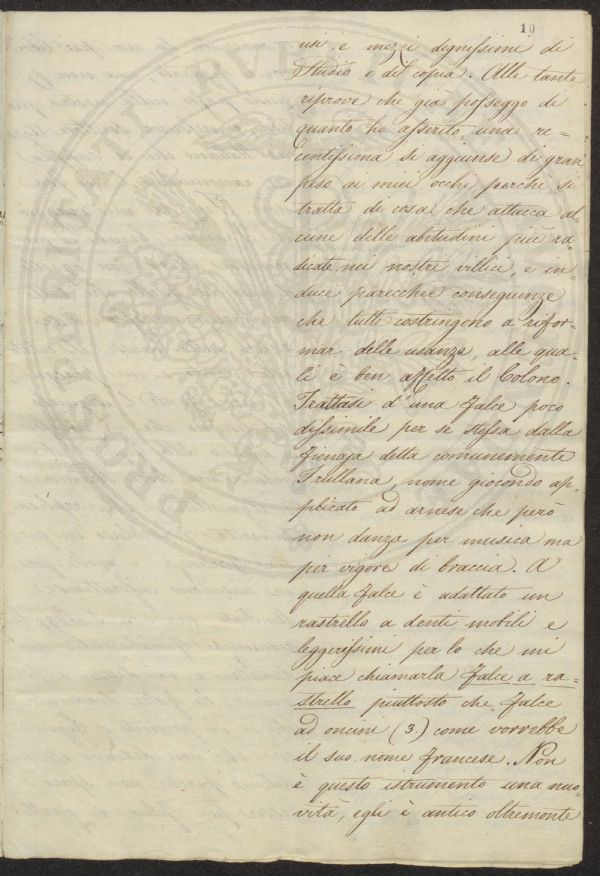 10
usi, e mezzi degnissimi di
studio e di copia. Alle tante
riprove che già posseggo di
quanto ho asserito una re=
centissima si aggiunse di gran
peso ai miei occhi perchè si
tratta di cosa che attacca al=
cune delle abitudini più ra=
dicate nei nostri villici, e in=
duce parecchie conseguenze
che tutte costringono a rifor=
mar delle usanze, alle qua=
li è ben affetto il Colono.
Trattasi d'una falce poco
dissimile per se stessa dalla
fienaja detta comunemente
Frullana, nome giocondo ap=
plicato ad arnese che però
non danza per musica ma
per vigore di braccia. A
quella falce è adattato un
rastrello a denti mobili e
leggerissimi per lo che mi
piace chiamarla falce a ra=
strello piuttosto che falce
ad oncini (3.) come vorrebbe
il suo nome francese. Non
è questo istrumento una nuo=
vità, egli è antico oltremonte
PROSPERITATI PUBLICAE